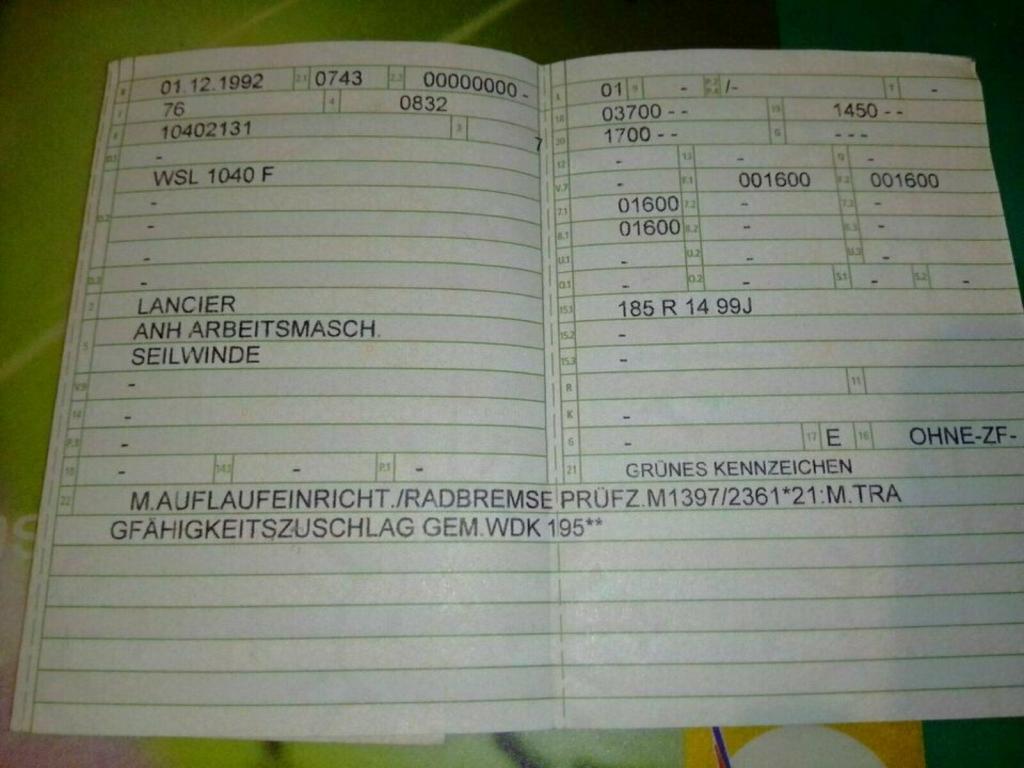 B 01.12.1992 2.1 0743 2.2 00000000 -
J 76 4 0832
E 10402131 3 7
D.1 -
WSL 1040 F
-
D.2 -
-
D.3 -
2 LANCIER
ANH ARBEITSMASCH.
5 SEILWINDE
V.9 -
14 -
P.3 -
10 - 14.1 - P.1 -
L 01 9 - P.2 P.4 /- T -
18 03700 - - 19 1450 - -
20 1700 - - G - - -
12 - 13 - Q -
V.7 - F.1 001600 F.2 001600
7.1 01600 7.2 - 7.3 -
8.1 01600 8.2 - 8.3 -
U.1 - U.2 - U.3 -
O.1 - O.2 - S.1 - S.2 -
15.1 185 R 14 99J
15.2 -
15.3 -
R 11
K -
6 - 17 E 16 OHNE-ZF-
21 GRÜNES KENNZEICHEN
22 M.AUFLAUFEINRICHT./RADBREMSE PRÜFZ.M1397/2361*21:M.TRA
GFÄHIGKEITSZUSCHLAG GEM.WDK 195**